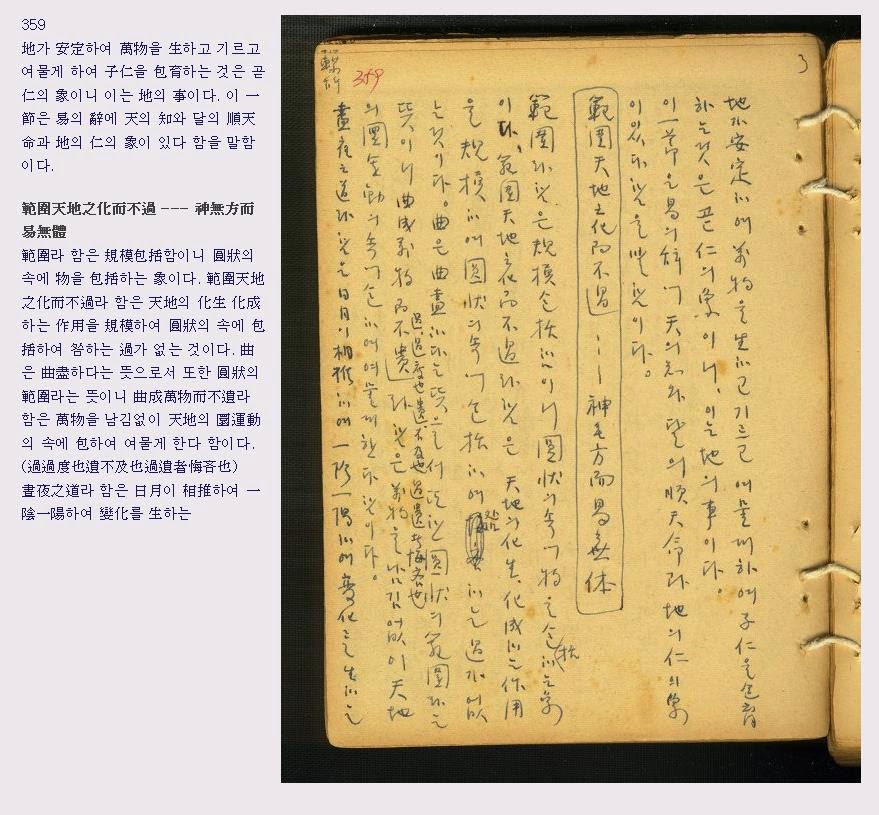 359
地가 安定하여 萬物을 生하고 기르고
여물게 하여 子仁을 包育하는 것은 곧
仁의 象이니 이는 地의 事이다. 이 一
節은 易의 辭에 天의 知와 달의 順天
命과 地의 仁의 象이 있다 함을 말함
이다.
範圍天地之化而不過 --- 神無方而
易無體
範圍라 함은 規模包括함이니 圓狀의
속에 物을 包括하는 象이다. 範圍天地
之化而不過라 함은 天地의 化生 化成
하는 作用을 規模하여 圓狀의 속에 包
括하여 咎하는 過가 없는 것이다. 曲
은 曲盡하다는 뜻으로서 또한 圓狀의
範圍라는 뜻이니 曲成萬物而不遺라
함은 萬物을 남김없이 天地의 圓運動
의 속에 包하여 여물게 한다 함이다.
(過過度也遺不及也過遺者悔吝也)
晝夜之道라 함은 日月이 相推하여 一
陰一陽하여 變化를 生하는
3
359
地가 安定하여 萬物을 生하고 기르고 여물게 하여 子仁을 包育
하는것은 곧 仁의 象이니, 이는 地의 事이다.
이 一節은 易의 辭에 天의 知와 달의 順天命과 地의 仁의 象
이 있다 함을 말함이다.
範圍天地之化而不過 --- 神無方而易無体
範圍라 함은 規模包括함이니 圓狀의 속에 物을 包括하는 象
이다. 範圍天地之化而不過라 함은 天地의 化生, 化成하는 作用
을 規模하여 圓狀의 속에 包括하여 하는 過가 없
는것이다. 曲은 曲盡하다는 뜻으로서 또한 圓狀의 範圍라는
過過度也遺不及也過遺者悔吝也
뜻이니 曲成萬物而不遺라 함은 萬物을 남김없이 天地
의 圓運動의 속에 包하여 여물게 한다 함이다.
晝夜之道라 함은 日月이 相推하여 一陰一陽하여 變化를 生하는